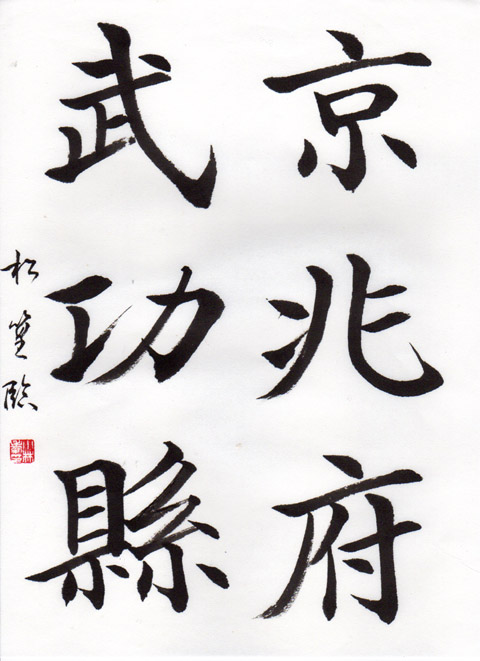 京兆府
武功縣
松臨